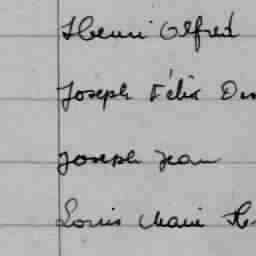 Henri Alfred
Joseph Félix
Joseph Jean
Louis Marie